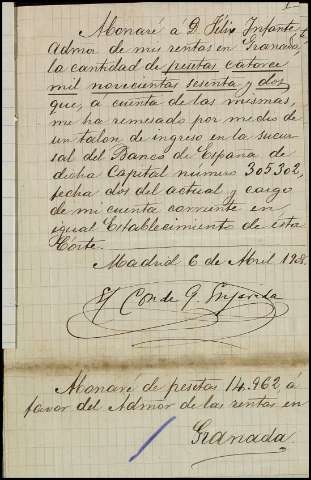 Abonaré a D. Félix Infante,
Admor de mis rentas en Granada,
la cantidad de pesetas catorce
mil novecientas sesenta y dos
que, a cuenta de las mismas,
me ha remesado por medio de
un talon de ingreso en la sucur
sal del Banco de España de
dicha Capital numero 305302,
fecha dos del actual y cargo
de mi cuenta corriente en
igual Establecimiento de esta
Corte.
Madrid 6 de Abril
El Conde G.
Abonaré de pesetas 14.962 á
favor del Admor de las rentas en
Granada.